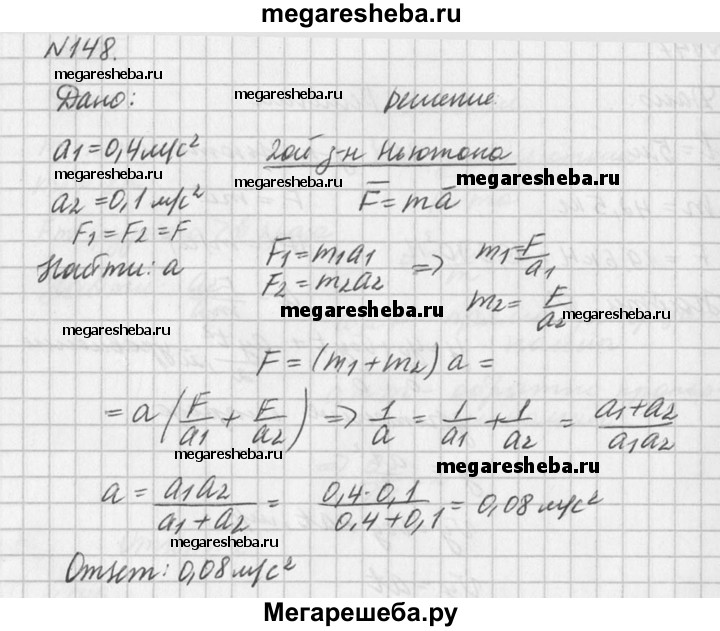 megaresheba.ru
N148.
megaresheba.ru
Дано: megaresheba.ru решение:
a1=0,4м/с² 2ой з-н Ньютона
megaresheba.ru
a2=0,1м/с² F̅=mā
megaresheba.ru
F1=F2=F
Найти: a F1=m1a1 => m1=F/a1
F2=m2a2 m2=F/a2
megaresheba.ru megaresheba.ru
megaresheba.ru
F=(m1+m2)a=
=a(F/a1+F/a2) => 1/a = 1/a1+1/a2 = a1+a2/a1a2
megaresheba.ru megaresheba.ru
a = a1a2/a1+a2 = 0,4·0,1/0,4+0,1 = 0,08м/с²
megaresheba.ru megaresheba.ru
Ответ: 0,08м/с²
Мегарешеба.ру